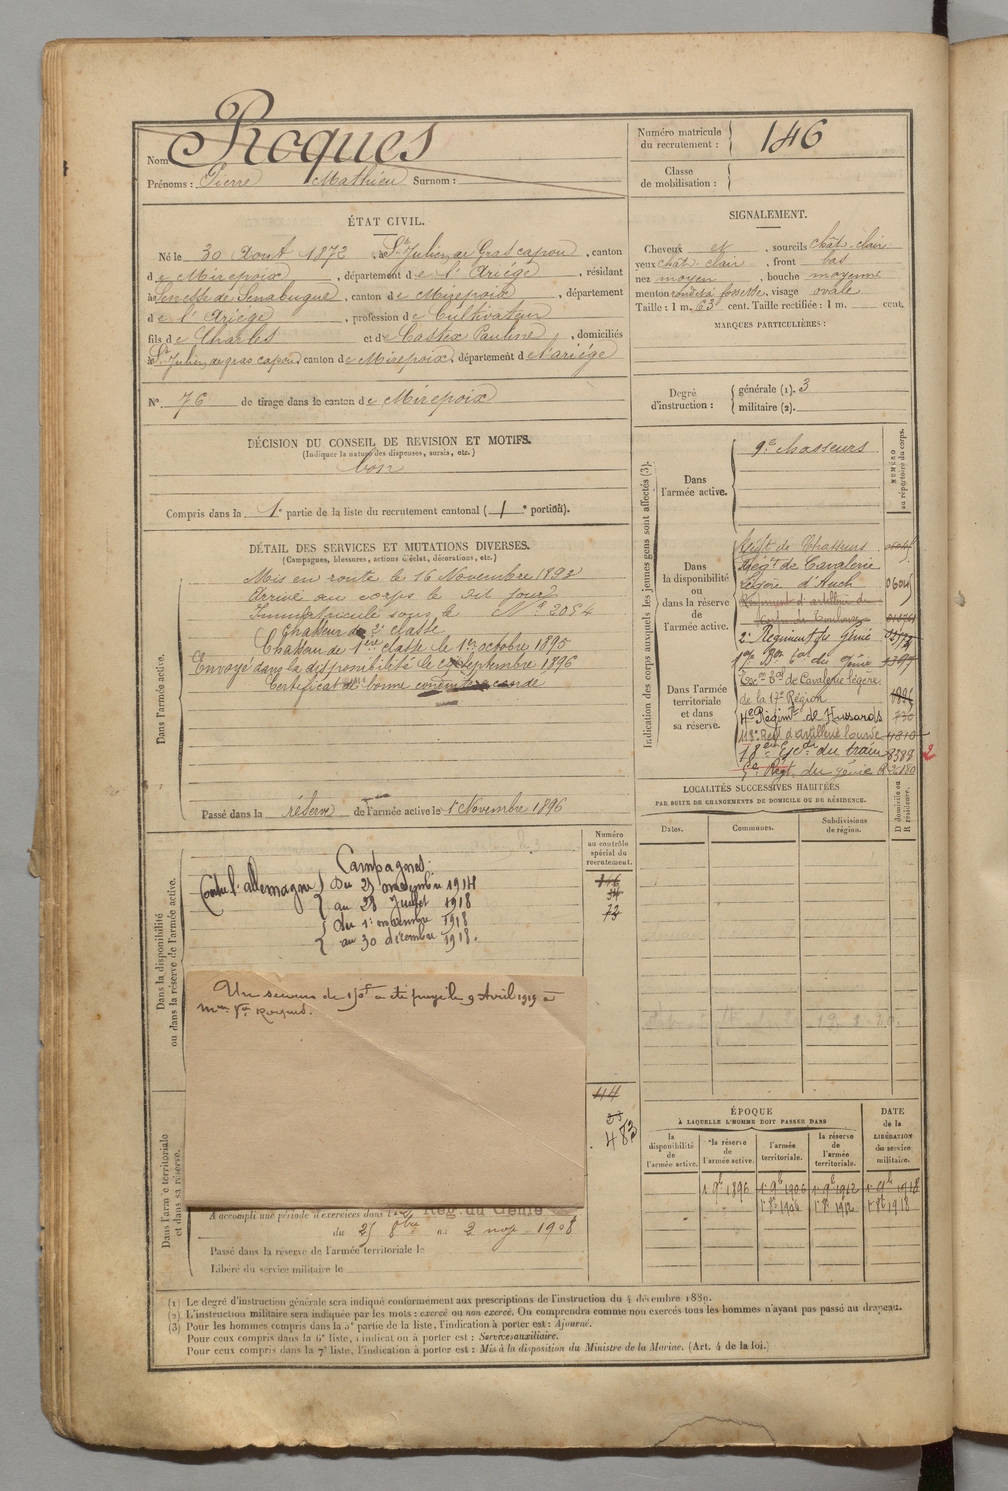 Nom Roques
Prénoms : Pierre Mathieu Surnom :
Numéro matricule du recrutement : 146
Classe de mobilisation :
ÉTAT CIVIL.
Né le 30 Aout 1872, à St Julien de Gras capou, canton
de Mirepoix, département de l'Ariége, résidant
à Senesse de Senabugue, canton de Mirepoix, département
de l'Ariége, profession de Cultivateur
fils de Charles et de Castex Pauline, domiciliés
à St Julien de gras capou canton de Mirepoix, département de l'ariége
N° 76 de tirage dans le canton de Mirepoix
SIGNALEMENT.
Cheveux et, sourcils chât. clair
yeux chât. clair, front bas
nez moyen, bouche moyenne
menton rond à fossette, visage ovale
Taille : 1 m. 63 cent. Taille rectifiée : 1 m. cent.
MARQUES PARTICULIÈRES :
Degré d'instruction : générale (1). 3
militaire (2).
DÉCISION DU CONSEIL DE REVISION ET MOTIFS.
(Indiquer la nature des dispenses, sursis, etc.)
bon
Compris dans la 1e partie de la liste du recrutement cantonal (1e portion).
DÉTAIL DES SERVICES ET MUTATIONS DIVERSES.
(Campagnes, blessures, actions d'éclat, décorations, etc.)
Dans l'armée active.
Mis en route le 16 Novembre 1893
Arrivé au corps le dit jour
Immatriculé sous le N° 2054
Chasseur de 2e classe
Chasseur de 1ère classe le 1er octobre 1895
Envoyé dans la disponibilité le septembre 1896
Certificat de bonne conduite accordé
Passé dans la réserve de l'armée active le 1 Novembre 1896
Indication des corps auxquels les jeunes gens sont affectés (3).
NUMÉRO au répertoire du corps.
Dans l'armée active.
9e chasseurs
Dans la disponibilité ou dans la réserve de l'armée active.
Régt de Chasseurs
Régt de Cavalerie
Légère d'Auch
Régiment d'artillerie de
2e Régiment du Génie
Dans l'armée territoriale et dans sa réserve.
17e Bon tal du Génie
de Cavalerie légère
de la 17e Région 1896
4e Régimt de Hussards 730
118e Régt d'artillerie lourde
18e Esc. du train 8388
Régt. du génie
LOCALITÉS SUCCESSIVES HABITÉES
PAR SUITE DE CHANGEMENTS DE DOMICILE OU DE RÉSIDENCE.
Dates. Communes. Subdivisions de région. D domicile ou R résidence.
Numéro au contrôle spécial du recrutement.
146
54
73
Dans la disponibilité ou dans la réserve de l'armée active.
Campagnes:
Contre l'allemagne du 23 novembre 1914
au 28 Juillet 1918
du 1er novembre 1918
au 30 décembre 1918.
Un secours de 150f a été payé le 9 Avril 1919 à
Mme Vve Roques.
114
23
483
Dans l'armée territoriale et dans sa réserve.
A accompli une période d'exercices dans l Rég. du Génie
du 25 8bre au 2 nov. 1908
Passé dans la réserve de l'armée territoriale le
Libéré du service militaire le
ÉPOQUE
À LAQUELLE L'HOMME DOIT PASSER DANS
DATE de la LIBÉRATION du service militaire.
la disponibilité de l'armée active. la réserve de l'armée active. l'armée territoriale. la réserve de l'armée territoriale.
1er 9b 1896 1er 9b 1906 1er 9b 1912 1er 9b 1918
1er 8b 1906 1er 8b 1912 1er 8b 1918
(1) Le degré d'instruction générale sera indiqué conformément aux prescriptions de l'instruction du 4 décembre 1889.
(2) L'instruction militaire sera indiquée par les mots : exercé ou non exercé. On comprendra comme non exercés tous les hommes n'ayant pas passé au drapeau.
(3) Pour les hommes compris dans la 5e partie de la liste, l'indication à porter est : Ajourné.
Pour ceux compris dans la 6e liste, l'indication à porter est : Services auxiliaire.
Pour ceux compris dans la 7e liste, l'indication à porter est : Mis à la disposition du Ministre de la Marine. (Art. 4 de la loi.)